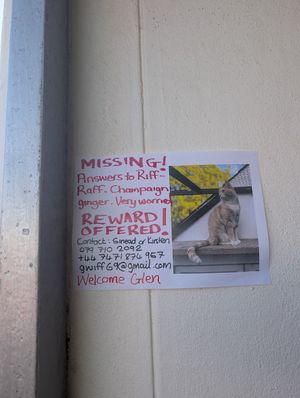 MISSING!
Answers to Riff-
Raff. Champaign
ginger. Very worried
REWARD
OFFERED!
Contact: Sinead or Kirsten
079 710 2092
+44 7471 874 957
gwiff69@gmail.com
Welcome Glen